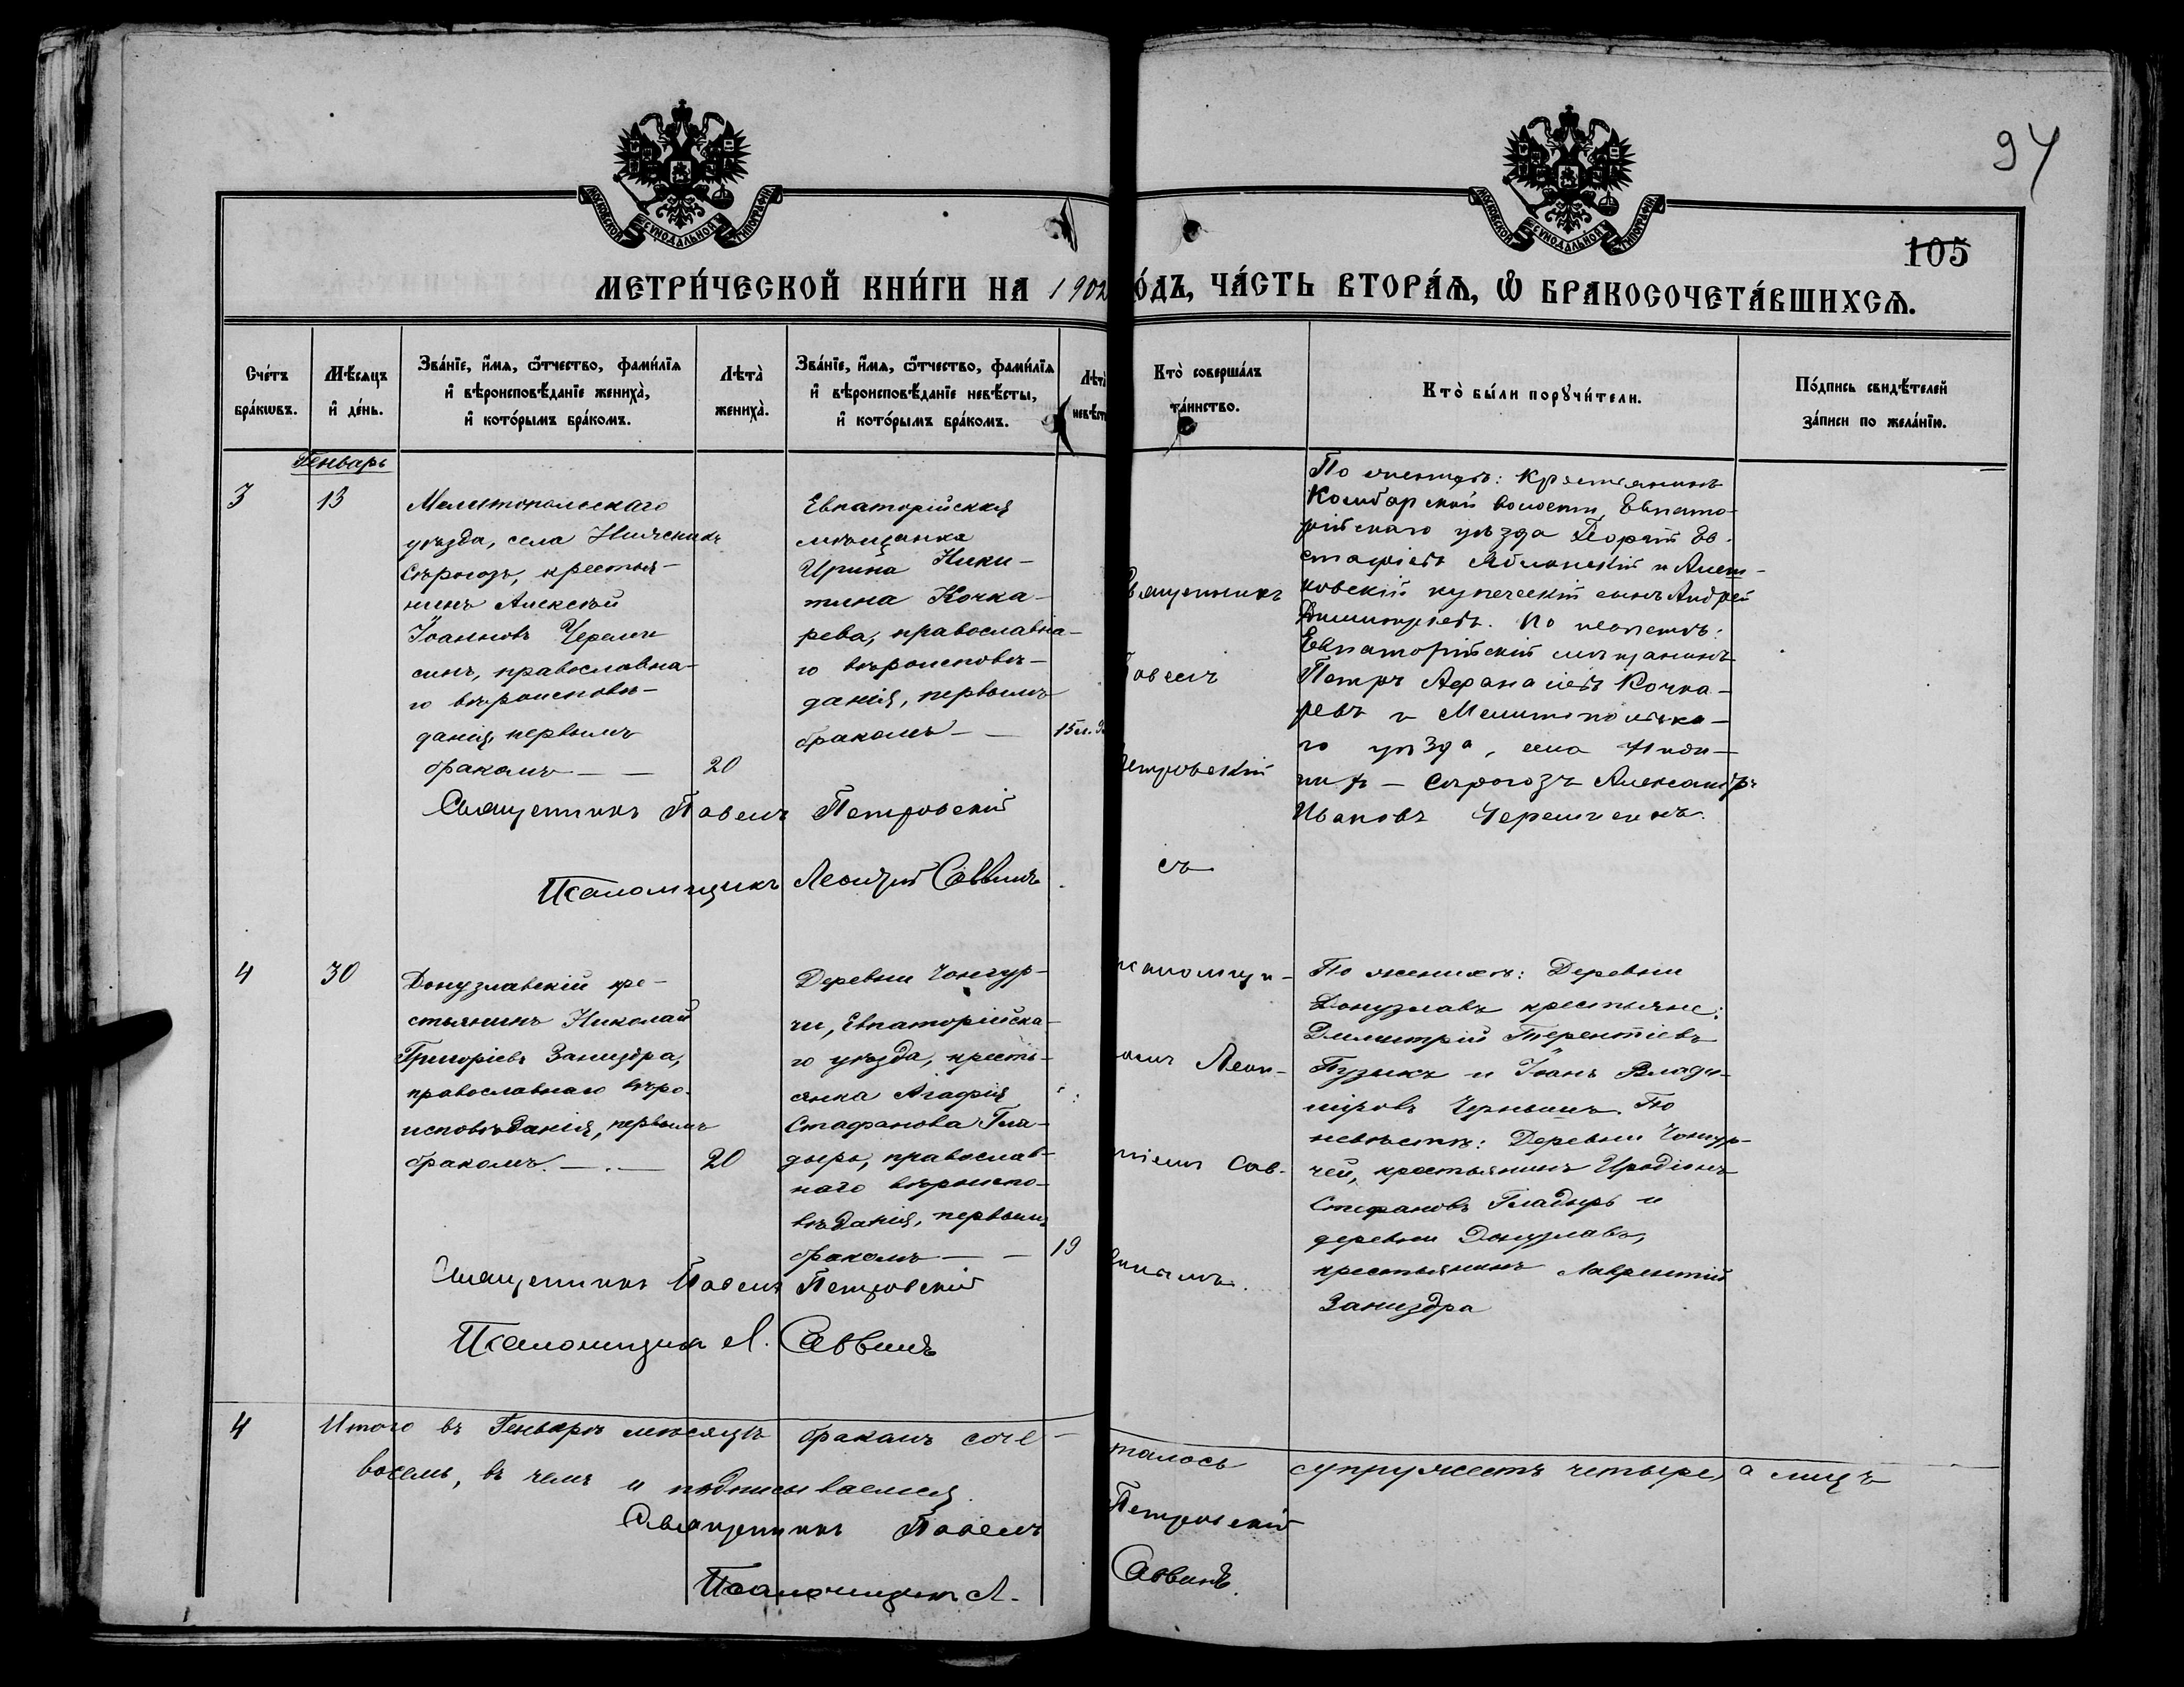 94
105
МОСКОВСКОЙ СѴНОДАЛЬНОЙ ТИПОГРАФІИ
МОСКОВСКОЙ СѴНОДАЛЬНОЙ ТИПОГРАФІИ
МЕТРИ́ЧЕСКОЙ КНИ́ГИ НА 1902 ГО́ДЪ, ЧА́СТЬ ВТОРА́Ѧ, Ѡ҆ БРАКОСОЧЕТА́ВШИХСѦ.
Сче́тъ
бра́кѡвъ.
Мѣ́сѧцъ
и҆ де́нь.
Зва́нїе, и҆́мѧ, ѻ҆́тчество, фами́лїѧ
и҆ вѣроисповѣ́данїе жениха̀,
и҆ кото́рымъ бра́комъ.
Лѣта̀
жениха̀.
Зва́нїе, и҆́мѧ, ѻ҆́тчество, фами́лїѧ
и҆ вѣроисповѣ́данїе невѣ́сты,
и҆ кото́рымъ бра́комъ.
Лѣта̀
невѣ́ст
Кто̀ соверша́лъ
та́инство.
Кто̀ бы́ли порꙋчи́тели.
По́дпись свидѣ́телей
за́писи по жела́нїю.
Генварь
3
13
Мелитопольскаго
уѣзда, села Нижснихъ
Сѣрогозъ, крестья-
нинъ Алексѣй
Іоанновъ Череми
синъ, православна-
го вѣроисповѣ-
данія, первымъ
бракомъ — —
20
Евпаторійская
мѣщанка
Ирина Ники-
тина Кочка-
рева, православна-
го вѣроисповѣ-
данія, первымъ
бракомъ — —
15 л.
Священникъ
Павелъ
Петровскій
съ
По женихѣ: крестьянинъ
Камбарской волости, Евпато-
рійскаго уѣзда Георгій Ев-
стафіевъ Яблонскій и Алеш-
ковскій купеческій сынъ Андрей
Димитріевъ. По невѣстѣ:
Евпаторійскій мѣщанинъ
Петръ Афанасіевъ Кочка-
ревъ и Мелитопольска-
го уѣзда, села Нижн-
ихъ — Сѣрогозъ Александръ
Ивановъ
Священникъ Павелъ Петровскій
Псаломщикъ Леонтій Саввинъ
4
30
Донузлавскій кре-
стьянинъ Николай
Григоріевъ Заниздра,
православнаго вѣро-
исповѣданія, первымъ
бракомъ. —.—
20
Деревни Чонгур-
чи, Евпаторійска-
го уѣзда, кресть-
янка Агафія
Стафанова Гла-
дырь, православ-
наго вѣроиспо-
вѣданія, первымъ
бракомъ — —
19
псаломщи-
комъ Леон-
тіемъ Сав-
винымъ.
По женихѣ: Деревни
Донузлавъ крестьяне:
Димитрій Терентіевъ
Пузыкъ и Іоанъ Влади-
міровъ Чернышъ. По
невѣстѣ: Деревни Чонгур-
чей, крестьянинъ Иродіонъ
Стефановъ Гладырь и
деревни Донузлавъ,
крестьянинъ Лаврентій
Заниздра
Священникъ Павелъ Петровскій
Псаломщикъ Л. Саввинъ
4
Итого въ Генварѣ мѣсяцѣ бракомъ соче-
талось супружествъ четыре, а лицъ
восемь, въ чемъ и подписываемся.
Священникъ Павелъ Петровскій
Псаломщикъ Л. Саввинъ.